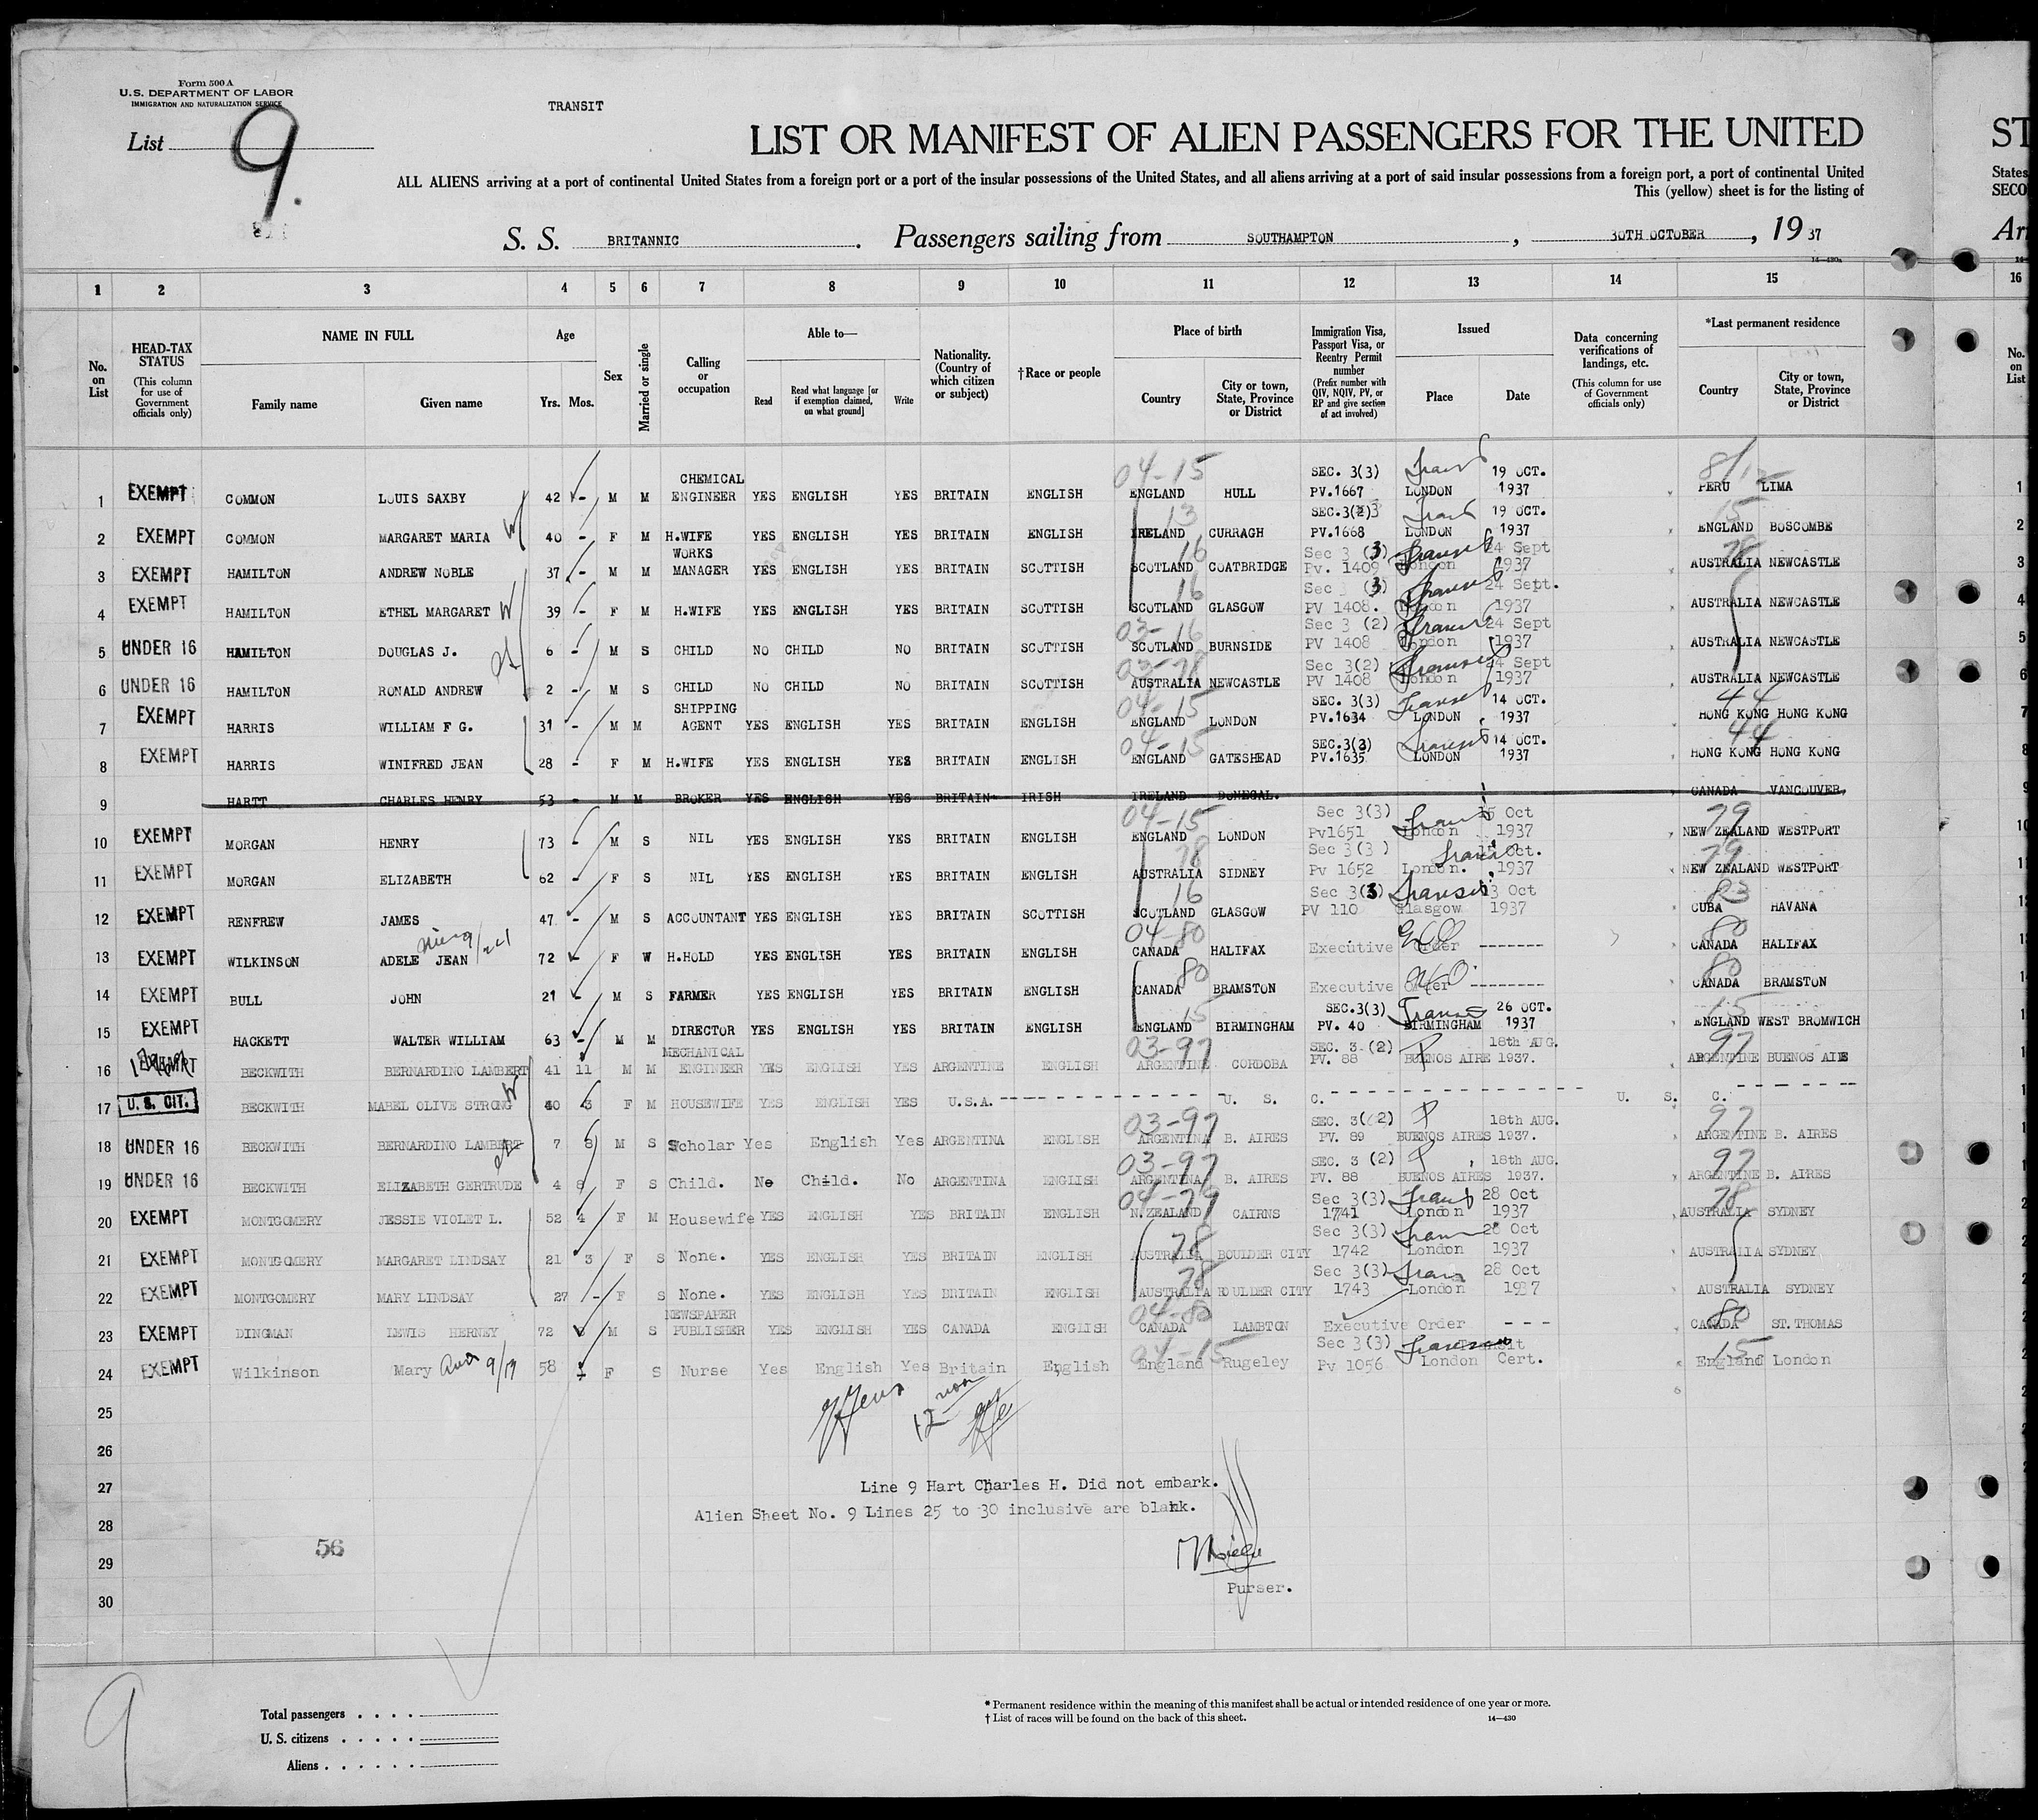 Form 500 A
U.S. DEPARTMENT OF LABOR
IMMIGRATION AND NATURALIZATION SERVICE
TRANSIT
List 9.
LIST OR MANIFEST OF ALIEN PASSENGERS FOR THE UNITED
ST
ALL ALIENS arriving at a port of continental United States from a foreign port or a port of the insular possessions of the United States, and all aliens arriving at a port of said insular possessions from a foreign port, a port of continental United
States
This (yellow) sheet is for the listing of
SECO
S. S. BRITANNIC . Passengers sailing from SOUTHAMPTON , 30TH OCTOBER , 19 37
Arr
1 2 3 4 5 6 7 8 9 10 11 12 13 14 15 16
No. on List
HEAD-TAX STATUS (This column for use of Government officials only)
NAME IN FULL
Family name Given name
Age
Yrs. Mos.
Sex
Married or single
Calling or occupation
Able to—
Read
Read what language [or if exemption claimed, on what ground]
Write
Nationality. (Country of which citizen or subject)
†Race or people
Place of birth
Country
City or town, State, Province or District
Immigration Visa, Passport Visa, or Reentry Permit number (Prefix number with QIV, NQIV, PV, or RP and give section of act involved)
Issued
Place Date
Data concerning verifications of landings, etc. (This column for use of Government officials only)
*Last permanent residence
Country
City or town, State, Province or District
No. on List
1 EXEMPT COMMON LOUIS SAXBY 42 - M M CHEMICAL ENGINEER YES ENGLISH YES BRITAIN ENGLISH 04-15 ENGLAND HULL SEC. 3(3) PV.1667 LONDON 19 OCT. 1937 PERU LIMA 1
2 EXEMPT COMMON MARGARET MARIA 40 - F M H.WIFE YES ENGLISH YES BRITAIN ENGLISH 13 IRELAND CURRAGH SEC.3(2)3 PV.1668 LONDON 19 OCT. 1937 15 ENGLAND BOSCOMBE 2
3 EXEMPT HAMILTON ANDREW NOBLE 37 - M M WORKS MANAGER YES ENGLISH YES BRITAIN SCOTTISH 16 SCOTLAND COATBRIDGE Sec 3 (3) Pv. 1409 Transit London 24 Sept 1937 78 AUSTRALIA NEWCASTLE 3
4 EXEMPT HAMILTON ETHEL MARGARET W 39 - F M H.WIFE YES ENGLISH YES BRITAIN SCOTTISH 16 SCOTLAND GLASGOW Sec 3 (3) PV 1408. Transit London 24 Sept. 1937 AUSTRALIA NEWCASTLE 4
5 UNDER 16 HAMILTON DOUGLAS J. 6 - M S CHILD NO CHILD NO BRITAIN SCOTTISH 03-16 SCOTLAND BURNSIDE Sec 3 (2) PV 1408 Transit London 24 Sept 1937 AUSTRALIA NEWCASTLE 5
6 UNDER 16 HAMILTON RONALD ANDREW 2 - M S CHILD NO CHILD NO BRITAIN SCOTTISH 03-78 AUSTRALIA NEWCASTLE Sec 3(2) PV 1408 Transit London 24 Sept 1937 AUSTRALIA NEWCASTLE 6
7 EXEMPT HARRIS WILLIAM F G. 31 - M M SHIPPING AGENT YES ENGLISH YES BRITAIN ENGLISH 04-15 ENGLAND LONDON SEC. 3(3) PV.1634 Transit LONDON 14 OCT. 1937 44 HONG KONG HONG KONG 7
8 EXEMPT HARRIS WINIFRED JEAN 28 - F M H.WIFE YES ENGLISH YES BRITAIN ENGLISH 04-15 ENGLAND GATESHEAD SEC.3(3) PV.1635 Transit LONDON 14 OCT. 1937 44 HONG KONG HONG KONG 8
9 HARTT CHARLES HENRY 53 - M M BROKER YES ENGLISH YES BRITAIN IRISH IRELAND DONEGAL. CANADA VANCOUVER 9
10 EXEMPT MORGAN HENRY 73 - M S NIL YES ENGLISH YES BRITAIN ENGLISH 04-15 ENGLAND LONDON Sec 3(3) Pv1651 London 15 Oct 1937 79 NEW ZEALAND WESTPORT 10
11 EXEMPT MORGAN ELIZABETH 62 - F S NIL YES ENGLISH YES BRITAIN ENGLISH 78 AUSTRALIA SIDNEY Sec 3(3 ) Pv 1652 London. Oct. 1937 79 NEW ZEALAND WESTPORT 11
12 EXEMPT RENFREW JAMES 47 - M S ACCOUNTANT YES ENGLISH YES BRITAIN SCOTTISH 16 SCOTLAND GLASGOW Sec 3(3) PV 110 Transit Glasgow 13 Oct 1937 83 CUBA HAVANA
13 EXEMPT WILKINSON ADELE JEAN 72 F W H.HOLD YES ENGLISH YES BRITAIN ENGLISH 04-80 CANADA HALIFAX Executive Order ------- 80 CANADA HALIFAX
14 EXEMPT BULL JOHN 21 - M S FARMER YES ENGLISH YES BRITAIN ENGLISH 80 CANADA BRAMSTON Executive Order -------- 80 CANADA BRAMSTON
15 EXEMPT HACKETT WALTER WILLIAM 63 - M M DIRECTOR YES ENGLISH YES BRITAIN ENGLISH 15 ENGLAND BIRMINGHAM SEC.3(3) PV. 40 Transit BIRMINGHAM 26 OCT. 1937 15 ENGLAND WEST BROMWICH
16 EXEMPT BECKWITH BERNARDINO LAMBERT 41 11 M M MECHANICAL ENGINEER YES ENGLISH YES ARGENTINE ENGLISH 03-97 ARGENTINE CORDOBA SEC. 3 (2) PV. 88 P BUENOS AIRE 18th AUG. 1937. 97 ARGENTINE BUENOS AIRE
17 U. S. CIT. BECKWITH MABEL OLIVE STRONG W 40 3 F M HOUSEWIFE YES ENGLISH YES U.S.A. ------------ U. S. C. ------------ U. S. C. -------
18 UNDER 16 BECKWITH BERNARDINO LAMBERT 7 8 M S Scholar Yes English Yes ARGENTINA ENGLISH 03-97 ARGENTINA B. AIRES SEC. 3(2) PV. 89 P BUENOS AIRES 18th AUG. 1937. 97 ARGENTINE B. AIRES
19 UNDER 16 BECKWITH ELIZABETH GERTRUDE 4 8 F S Child. No Child. No ARGENTINA ENGLISH 03-97 ARGENTINA B. AIRES SEC. 3 (2) PV. 88 P BUENOS AIRES 18th AUG. 1937. 97 ARGENTINE B. AIRES
20 EXEMPT MONTGOMERY JESSIE VIOLET L. 52 4 F M Housewife YES ENGLISH YES BRITAIN ENGLISH 04-79 N.ZEALAND CAIRNS Sec 3(3) 1741 London 28 Oct 1937 78 AUSTRALIA SYDNEY
21 EXEMPT MONTGOMERY MARGARET LINDSAY 21 3 F S None. YES ENGLISH YES BRITAIN ENGLISH 78 AUSTRALIA BOULDER CITY Sec 3(3) 1742 London 28 Oct 1937 AUSTRALIA SYDNEY
22 EXEMPT MONTGOMERY MARY LINDSAY 27 - F S None. YES ENGLISH YES BRITAIN ENGLISH 78 AUSTRALIA BOULDER CITY Sec 3(3) 1743 London 28 Oct 1937 AUSTRALIA SYDNEY
23 EXEMPT DINGMAN LEWIS HERNEY 72 M S NEWSPAPER PUBLISHER YES ENGLISH YES CANADA ENGLISH 04-80 CANADA LAMBTON Executive Order --- 80 CANADA ST.THOMAS
24 EXEMPT Wilkinson Mary 9/19 58 F S Nurse Yes English Yes Britain English 04-15 England Rugeley Sec 3(3) Pv 1056 London Transit Cert. 15 England London
25
12 noon
26
27 Line 9 Hart Charles H. Did not embark.
Alien Sheet No. 9 Lines 25 to 30 inclusive are blank.
28
56
29
Purser.
30
9
Total passengers . . . .
U. S. citizens . . . . .
Aliens . . . . . .
* Permanent residence within the meaning of this manifest shall be actual or intended residence of one year or more.
† List of races will be found on the back of this sheet.
14—430